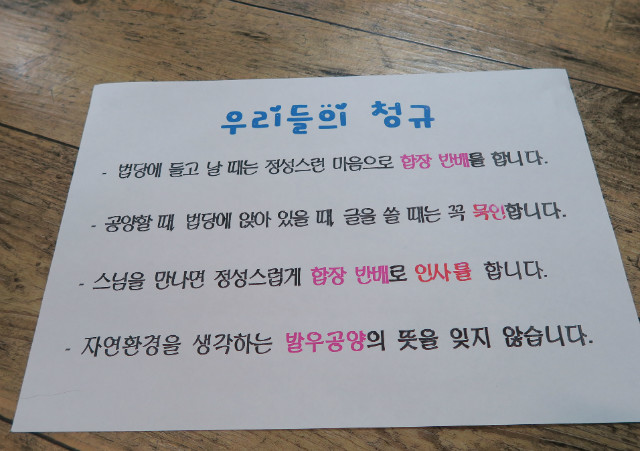 우리들의 청규
- 법당에 들고 날 때는 정성스런 마음으로 합장 반배를 합니다.
- 공양할 때, 법당에 앉아 있을 때, 글을 쓸 때는 꼭 묵언합니다.
- 스님을 만나면 정성스럽게 합장 반배로 인사를 합니다.
- 자연환경을 생각하는 발우공양의 뜻을 잊지 않습니다.